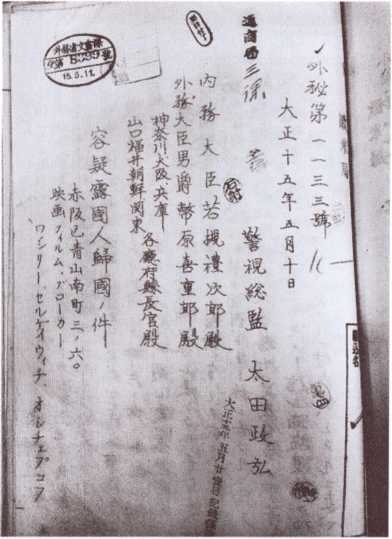 外秘第一一三三號
大正十五年五月十日
警視総監 太田政弘
内務大臣若槻禮次郎殿
外務大臣男爵幣原喜重郎殿
神奈川、大阪、兵庫
山口福井朝鮮関東
各廳府縣長官殿
容疑露國人歸國ノ件
赤坂区青山南町三ノ六〇
映画フィルム、ブローカー
ワシリー、セルゲイウィチ、オシチェプコフ
通商局
三課
外務省文書課
15.5.11.